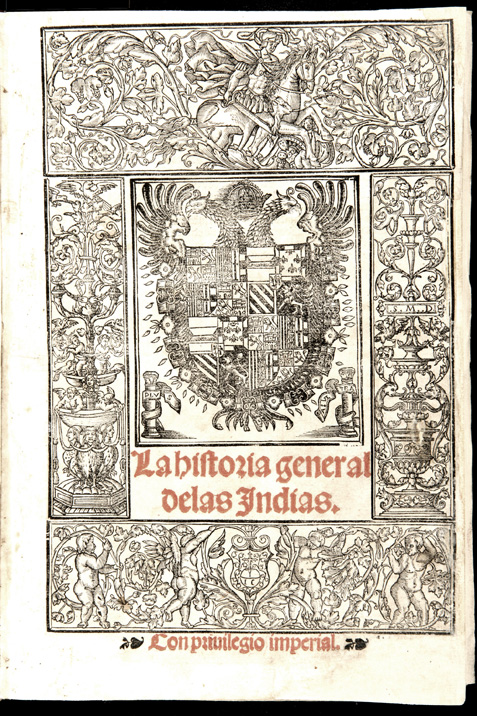 PLV
S. M. D.
La historia general
delas Indias.
Con priuilegio imperial.